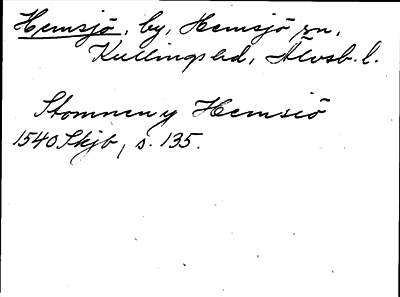 Hemsjö, by, Hemsjö sn,
Kullings hd, Älvsb. l.
Stomnen y Hemsiö
1540 Skjb, s. 135.